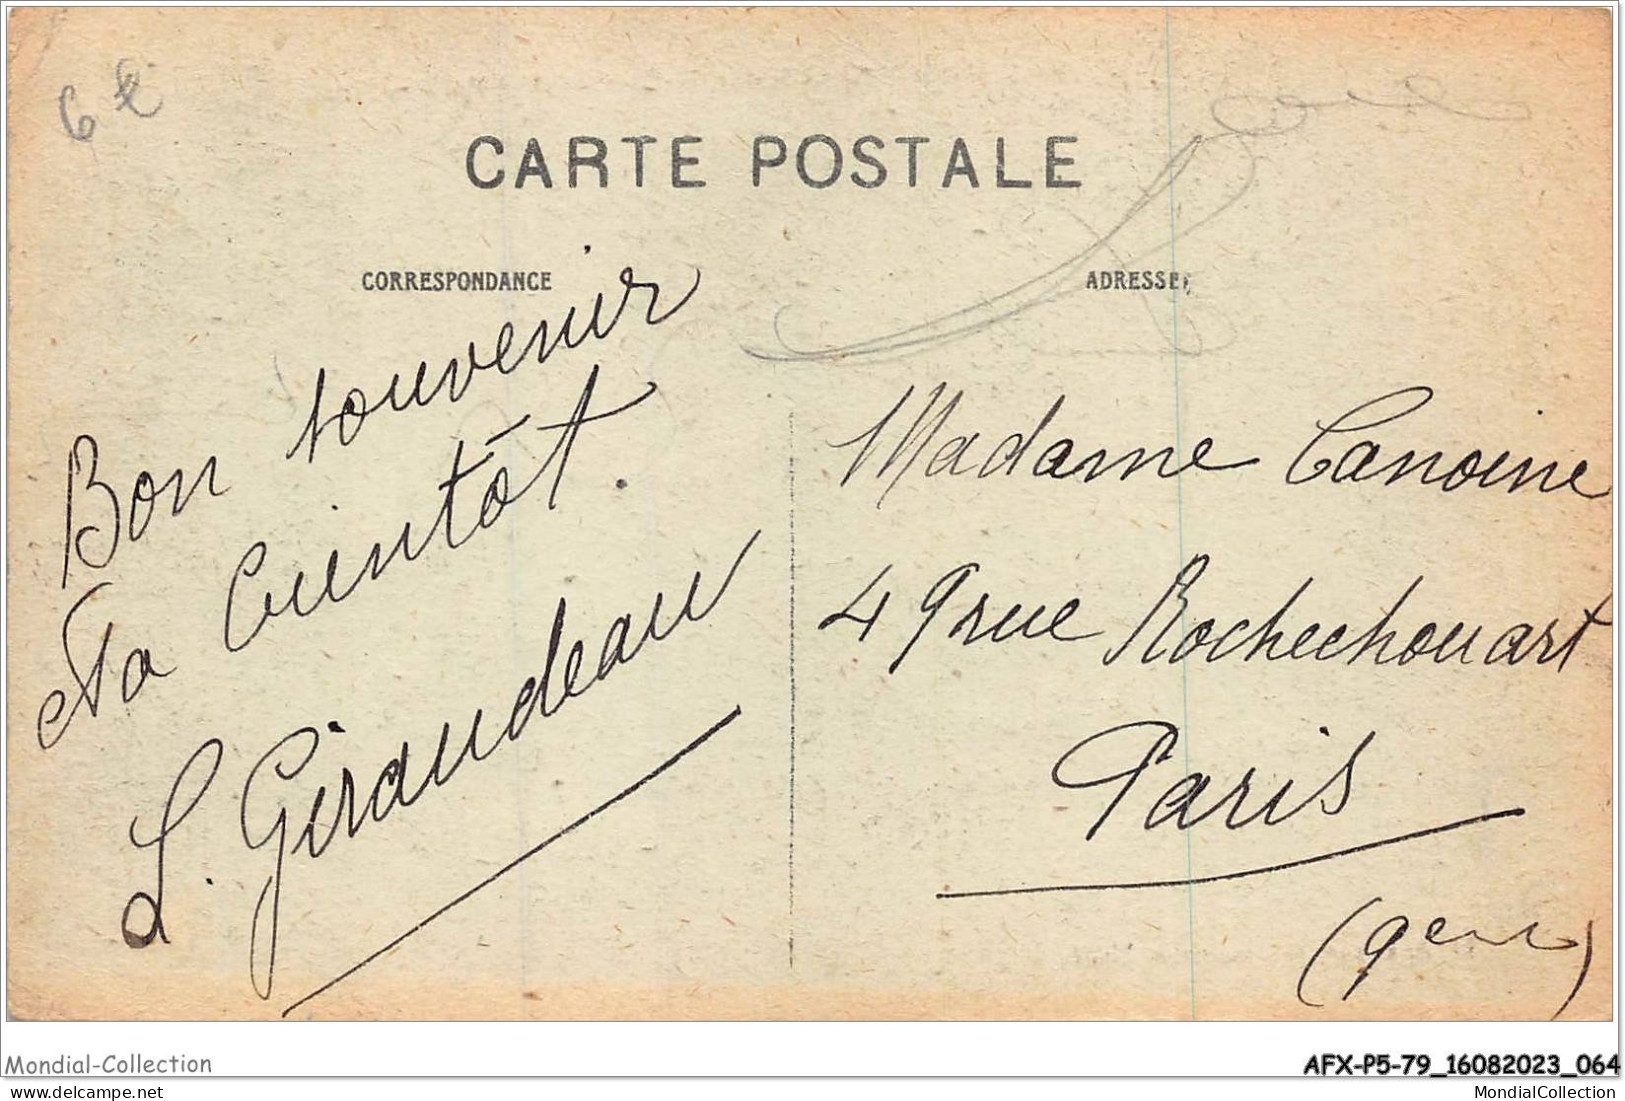 6 €
CARTE POSTALE
CORRESPONDANCE
ADRESSE
Bon souvenir
et à bientôt.
L. Giraudeau
Madame Canoine
49 rue Rochechouart
Paris
(9eme)
Mondial-Collection
AFX-P5-79_16082023_064
www.delcampe.net
MondialCollection